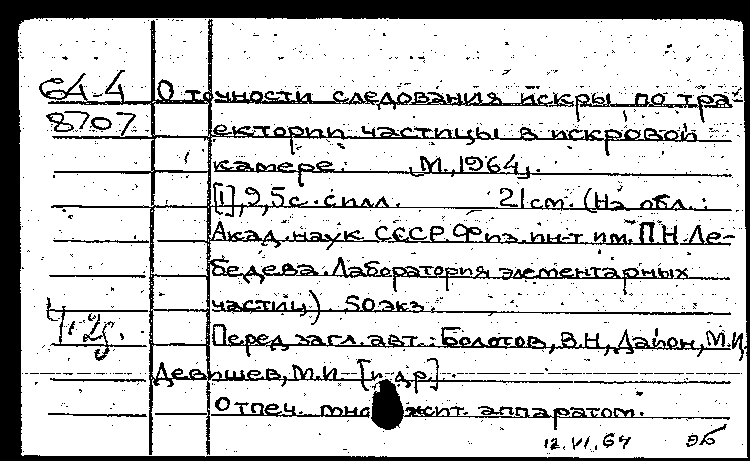 64-4 О точности следования искры по тра-
8707 ектории частицы в искровой
камере. М., 1964.
[1], 9, 5 с. с илл. 21 см. (На обл.:
Акад. наук СССР. Физ. ин-т им. П.Н. Ле-
бедева. Лаборатория элементарных
частиц). 50 экз.
Перед загл. авт.: Болотов, В.Н, Дайон, М.И,
Девишев, М.И. [и др.].
Отпеч. множит. аппаратом.
12.VI.64